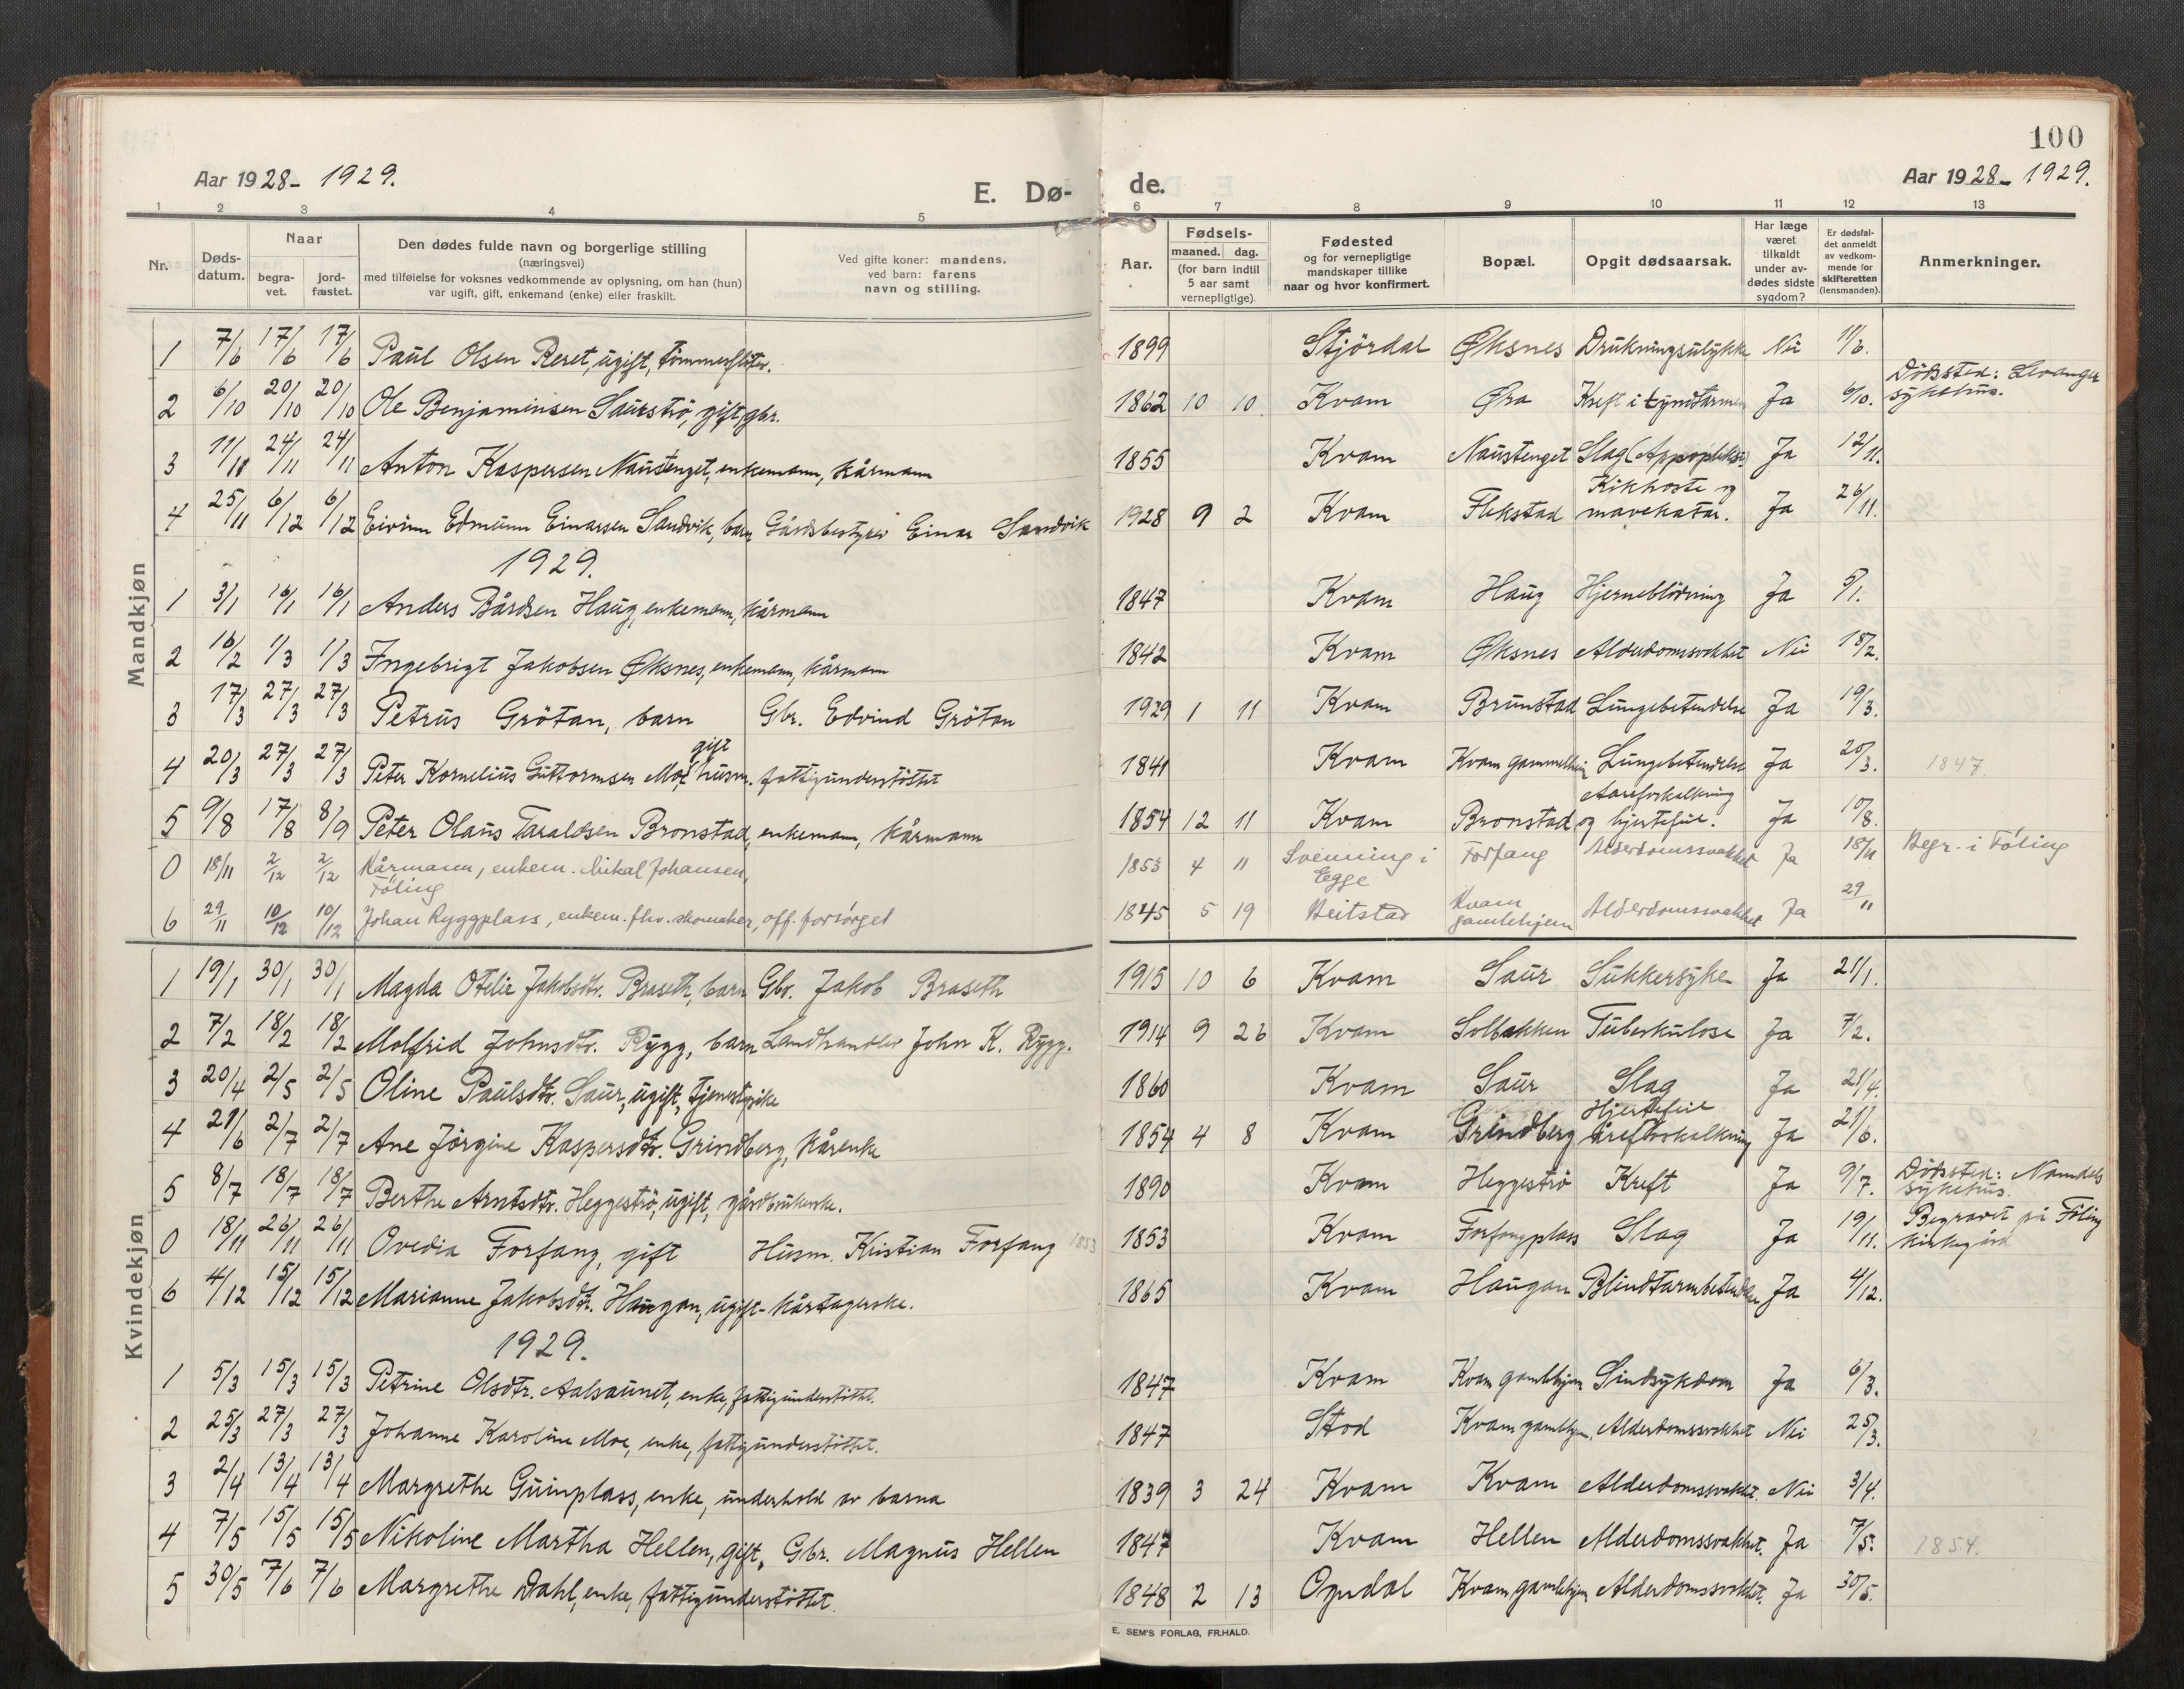 100
Aar 1928- 1929.
E. Dø-
de.
Aar 1928- 1929.
1 2 3 4 5 6 7 8 9 10 11 12 13
Nr.
Døds-
datum.
Naar
begra-
vet.
jord-
fæstet.
Den dødes fulde navn og borgerlige stilling
(næringsvei)
med tilføielse for voksnes vedkommende av oplysning, om han (hun)
var ugift, gift, enkemand (enke) eller fraskilt.
Ved gifte koner: mandens.
ved barn: farens
navn og stilling.
Aar.
Fødsels-
maaned. dag.
(for barn indtil
5 aar samt
vernepligtige).
Fødested
og for vernepligtige
mandskaper tillike
naar og hvor konfirmert.
Bopæl.
Opgit dødsaarsak.
Har læge
været
tilkaldt
under av-
dødes sidste
sygdom?
Er dødsfal-
det anmeldt
av vedkom-
mende for
skifteretten
(lensmanden).
Anmerkninger.
Mandkjøn
1 7/6 17/6 17/6 Paul Olsen Reret, ugift, tømmerfløter. 1899 Stjördal Øksnes Drukningsulykke Nei 11/6.
2 6/10 20/10 20/10 Ole Benjaminsen Saurstrø, gift, gbr. 1862 10 10. Kvam Øra Kreft i tyndtarmen Ja 6/10. Dödssted: Levanger
sykehus.
3 11/11 24/11 24/11 Anton Kaspersen Naustenget, enkemann, kårmann 1855 Kvam Naustenget Slag (Appopleksi) Ja 12/11.
4 25/11 6/12 6/12 Eivinn Edmunn Einarsen Sandvik, barn Gårdsbestyrer Einar Sandvik 1928 9 2 Kvam Flekstad Kikhoste og
mavekatar. Ja 26/11.
1929.
1 3/1 16/1 16/1 Anders Bårdsen Haug, enkemann, kårmann 1847 Kvam Haug Hjerneblödning Ja 5/1.
2 16/2 1/3 1/3 Ingebrigt Jakobsen Øksnes, enkemann, kårmann 1842 Kvam Øksnes Alderdomssvakhet Nei 18/2.
3 17/3 27/3 27/3 Petrus Grötan, barn Gbr. Edvind Grötan 1929 1 11 Kvam Brunstad Lungebetendelse Ja 19/3.
4 20/3 27/3 27/3 Peter Kornelius Guttormsen Moe, gift husm. fattigunderstöttet 1841 Kvam Kvam gammelheim Lungebetendelse Ja 20/3. 1847
5 9/8 17/8 8/9 Peter Olaus Taraldsen Bronstad, enkemann, kårmann 1854 12 11 Kvam Bronstad Aareforkalkning
og hjertefeil. Ja 10/8.
0 18/11 2/12 2/12 Kårmann, enkem. Mikal Johansen,
Föling 1853 4 11 Svenning i
Egge Forfang Alderdomssvakhet Ja 18/11 Begr. i Föling
6 29/11 10/12 10/12 Johan Ryggplass, enkem. fhv. skomaker, off. forsörget 1845 5 19 Beitstad Kvam
gamlehjem Alderdomssvakhet Ja 29/11
Kvindekjøn
1 19/1 30/1 30/1 Magda Otelie Jakobsdtr. Braseth, barn Gbr. Jakob Braseth 1915 10 6 Kvam Saur Sukkersyke Ja 21/1.
2 7/2 18/2 18/2 Molfrid Johnsdtr. Rygg, barn Landhandler John K. Rygg. 1914 9 26 Kvam Solbakken Tuberkulose Ja 7/2.
3 20/4 2/5 2/5 Oline Paulsdtr. Saur, ugift, tjenestpike 1860 Kvam Saur Slag Ja 21/4.
4 21/6 2/7 2/7 Ane Jörgine Kaspersdtr. Grindberg, kårenke 1854 4 8 Kvam Grindberg Hjertefeil
åreforkalkning Ja 21/6.
5 8/7 18/7 18/7 Berthe Arntsdtr. Heggeströ, ugift, gårdbrukerske. 1890 Kvam Heggeströ Kreft Ja 9/7. Dödssted: Namdals
sykehus.
0 18/11 26/11 26/11 Ovedia Forfang, gift Husm. Kristian Forfang 1853 1853 Kvam Forfangplass Slag Ja 19/11. Begravet på Föling
kirkegård
6 4/12 15/12 15/12 Marianne Jakobsdtr. Haugan, ugift - kårtagerske. 1865 Kvam Haugan Blindtarmbetendelse Ja 4/12.
1929.
1 5/3 15/3 15/3 Petrine Olsdtr. Aalsaunet, enke, fattigunderstöttet. 1847 Kvam Kvam gamlehjem Sindsykdom Ja 6/3.
2 25/3 27/3 27/3 Johanne Karoline Moe, enke, fattigunderstöttet. 1847 Stod Kvam gamlehjem, Alderdomssvakhet Nei 25/3.
3 2/4 13/4 13/4 Margrethe Guinplass, enke, underhold av barna 1839 3 24 Kvam Kvam Alderdomssvakhet. Nei 3/4.
4 7/5 15/5 15/5 Nikoline Martha Hellen, gift, Gbr. Magnus Hellen 1847 Kvam Hellen Alderdomssvakhet. Ja 7/5. 1854.
5 30/5 7/6 7/6 Margrethe Dahl, enke, fattigunderstöttet. 1848 2 13 Opdal Kvam gamlehjem Alderdomssvakhet. Ja 30/5.
E. SEM'S FORLAG, FR.HALD.